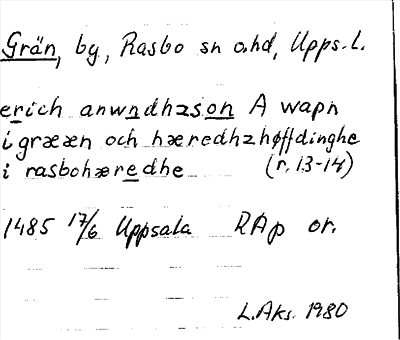 Grän, by, Rasbo sn o.hd, Upps.l.
erich anwndhzson A wapn
i grææn och hæredhzhøffdinghe
i rasbohæredhe (r. 13-14)
1485 17/6 Uppsala RAp or.
L.Aks. 1980